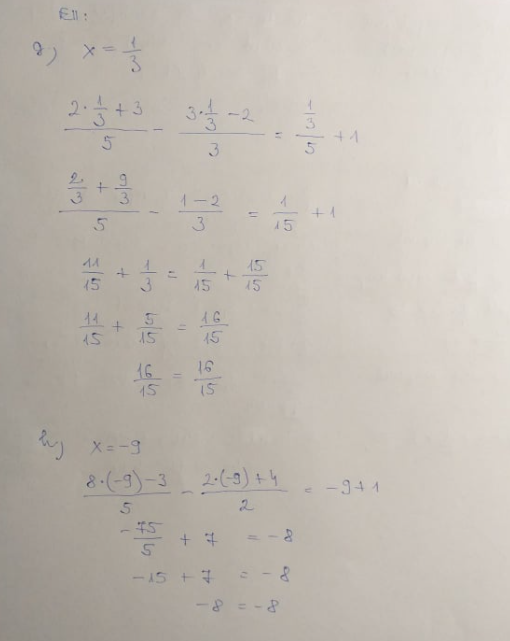 EII:
g) x = 1/3
(2·1/3 + 3)/5 − (3·1/3 − 2)/3 = (1/3)/5 + 1
(2/3 + 9/3)/5 − (1 − 2)/3 = 1/15 + 1
11/15 + 1/3 = 1/15 + 15/15
11/15 + 5/15 = 16/15
16/15 = 16/15
h) x = −9
(8·(−9) − 3)/5 − (2·(−9) + 4)/2 = −9 + 1
−75/5 + 7 = −8
−15 + 7 = −8
−8 = −8